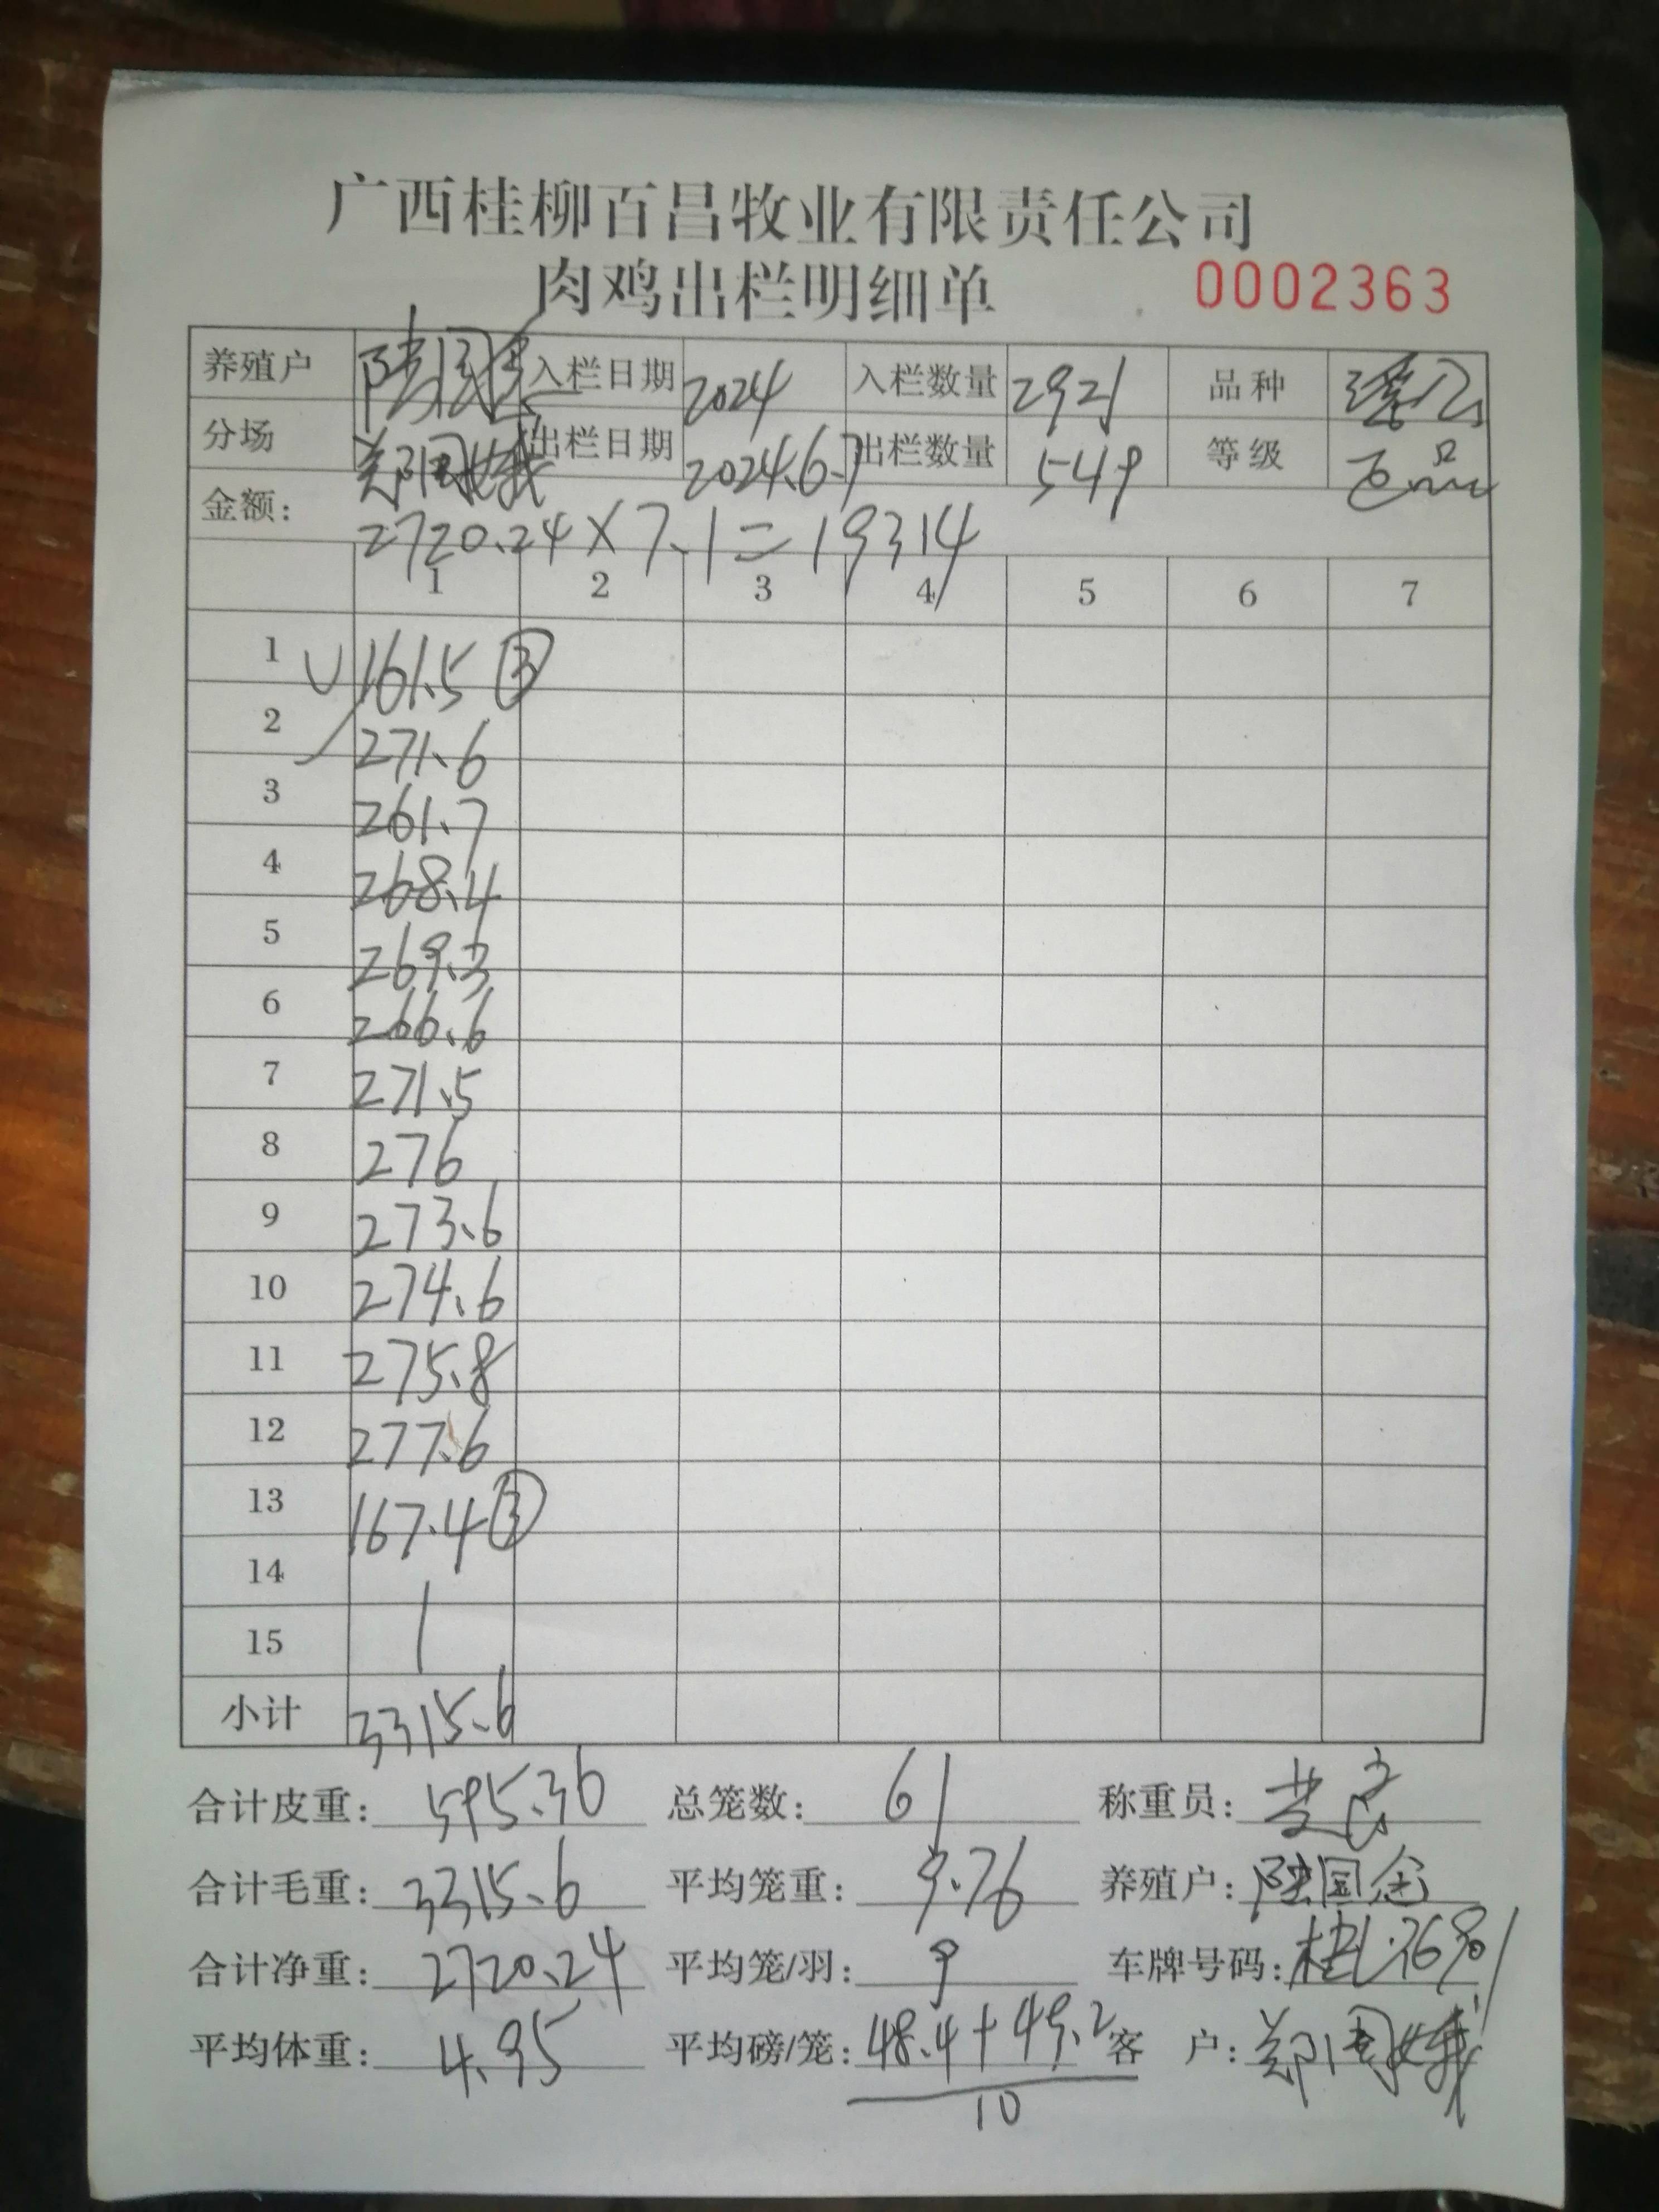 广西桂柳百昌牧业有限责任公司
肉鸡出栏明细单 0002363
养殖户 入栏日期 2024 入栏数量 2921 品种
分场 郑国娥 出栏日期 2024.6.7 出栏数量 549 等级 正品
金额: 2720.24×7.1=19314
1 2 3 4 5 6 7
1 161.5 ③
2 271.6
3 261.7
4 268.4
5 269.3
6 266.6
7 271.5
8 276
9 273.6
10 274.6
11 275.8
12 277.6
13 167.4 ③
14
15
小计 3315.6
合计皮重: 595.36 总笼数: 61 称重员:
合计毛重: 3315.6 平均笼重: 9.76 养殖户: 陆国
合计净重: 2720.24 平均笼/羽: 9 车牌号码:
平均体重: 4.95 平均磅/笼: 48.4+49.2 客 户: 郑国娥
10